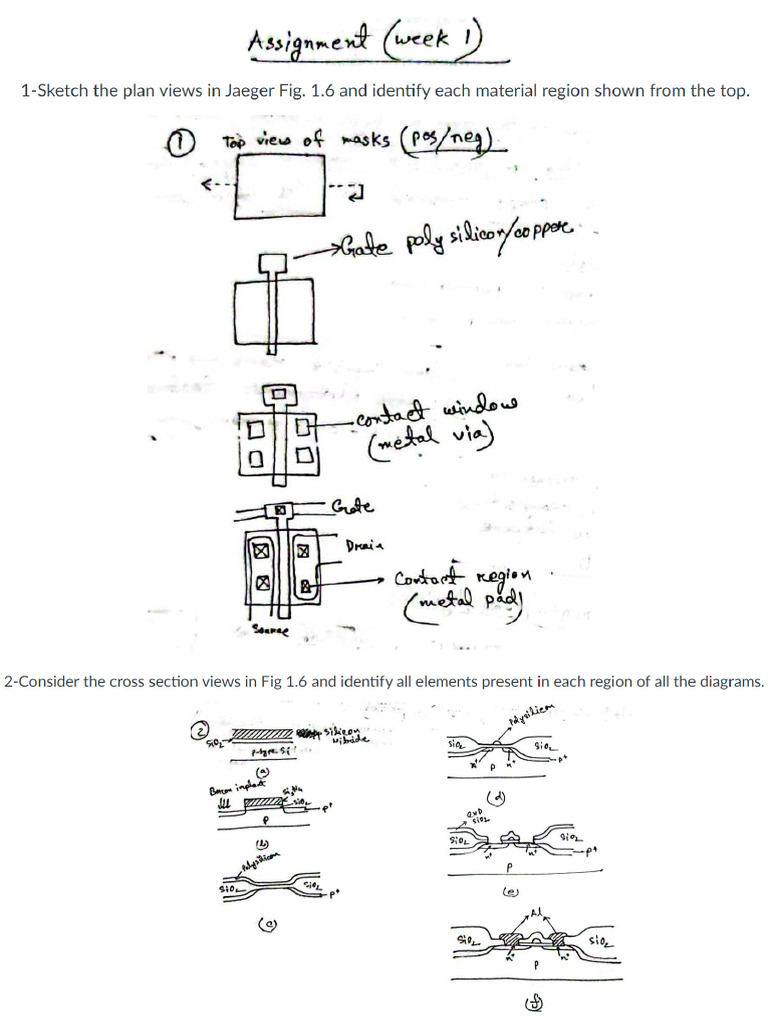 Assignment (week 1)
1-Sketch the plan views in Jaeger Fig. 1.6 and identify each material region shown from the top.
① Top view of masks (pos/neg)
Gate poly silicon/copper
contact window
(metal via)
Gate
Drain
Contact region
(metal pad)
Source
2-Consider the cross section views in Fig 1.6 and identify all elements present in each region of all the diagrams.
②
SiO2
silicon
Nitride
P-type Si
(a)
Boron implant
SiO2
P+
P
(b)
Polysilicon
SiO2
SiO2
P+
(c)
Polysilicon
SiO2
SiO2
P+
n+
P
n+
(d)
CVD
SiO2
SiO2
SiO2
P+
n+
n+
P
(e)
Al
SiO2
SiO2
n+
n+
P
(f)